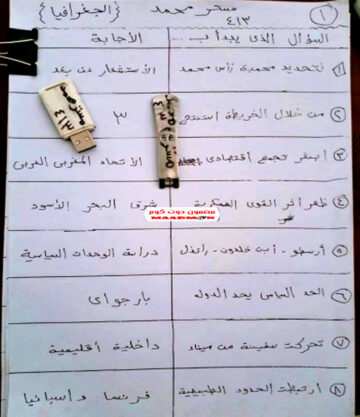 مستر محمد {الجغرافيا} ١
٤١٣
السؤال الذى يبدأ ب الأجابة
١ لتحديد محمية رأس محمد الأستشعار عن بعد
٢ من خلال الخريطة استنتج ٣
٣ أصغر تجمع أقتصادى الاتحاد المغربى العربى
٤ ظهر أثر القوى العسكرية شرق البحر الأسود
مضمون دوت كوم
٥ أرسطو - أبن خلدون - راتزل دراسة الوحدات السياسية
٦ الحد السياسى يحد الدوله بارجواى
٧ تحركت سفينة من ميناء داخلية أقليمية
٨ أرتبطت الحدود الطبيعية فرنسا وأسبانيا